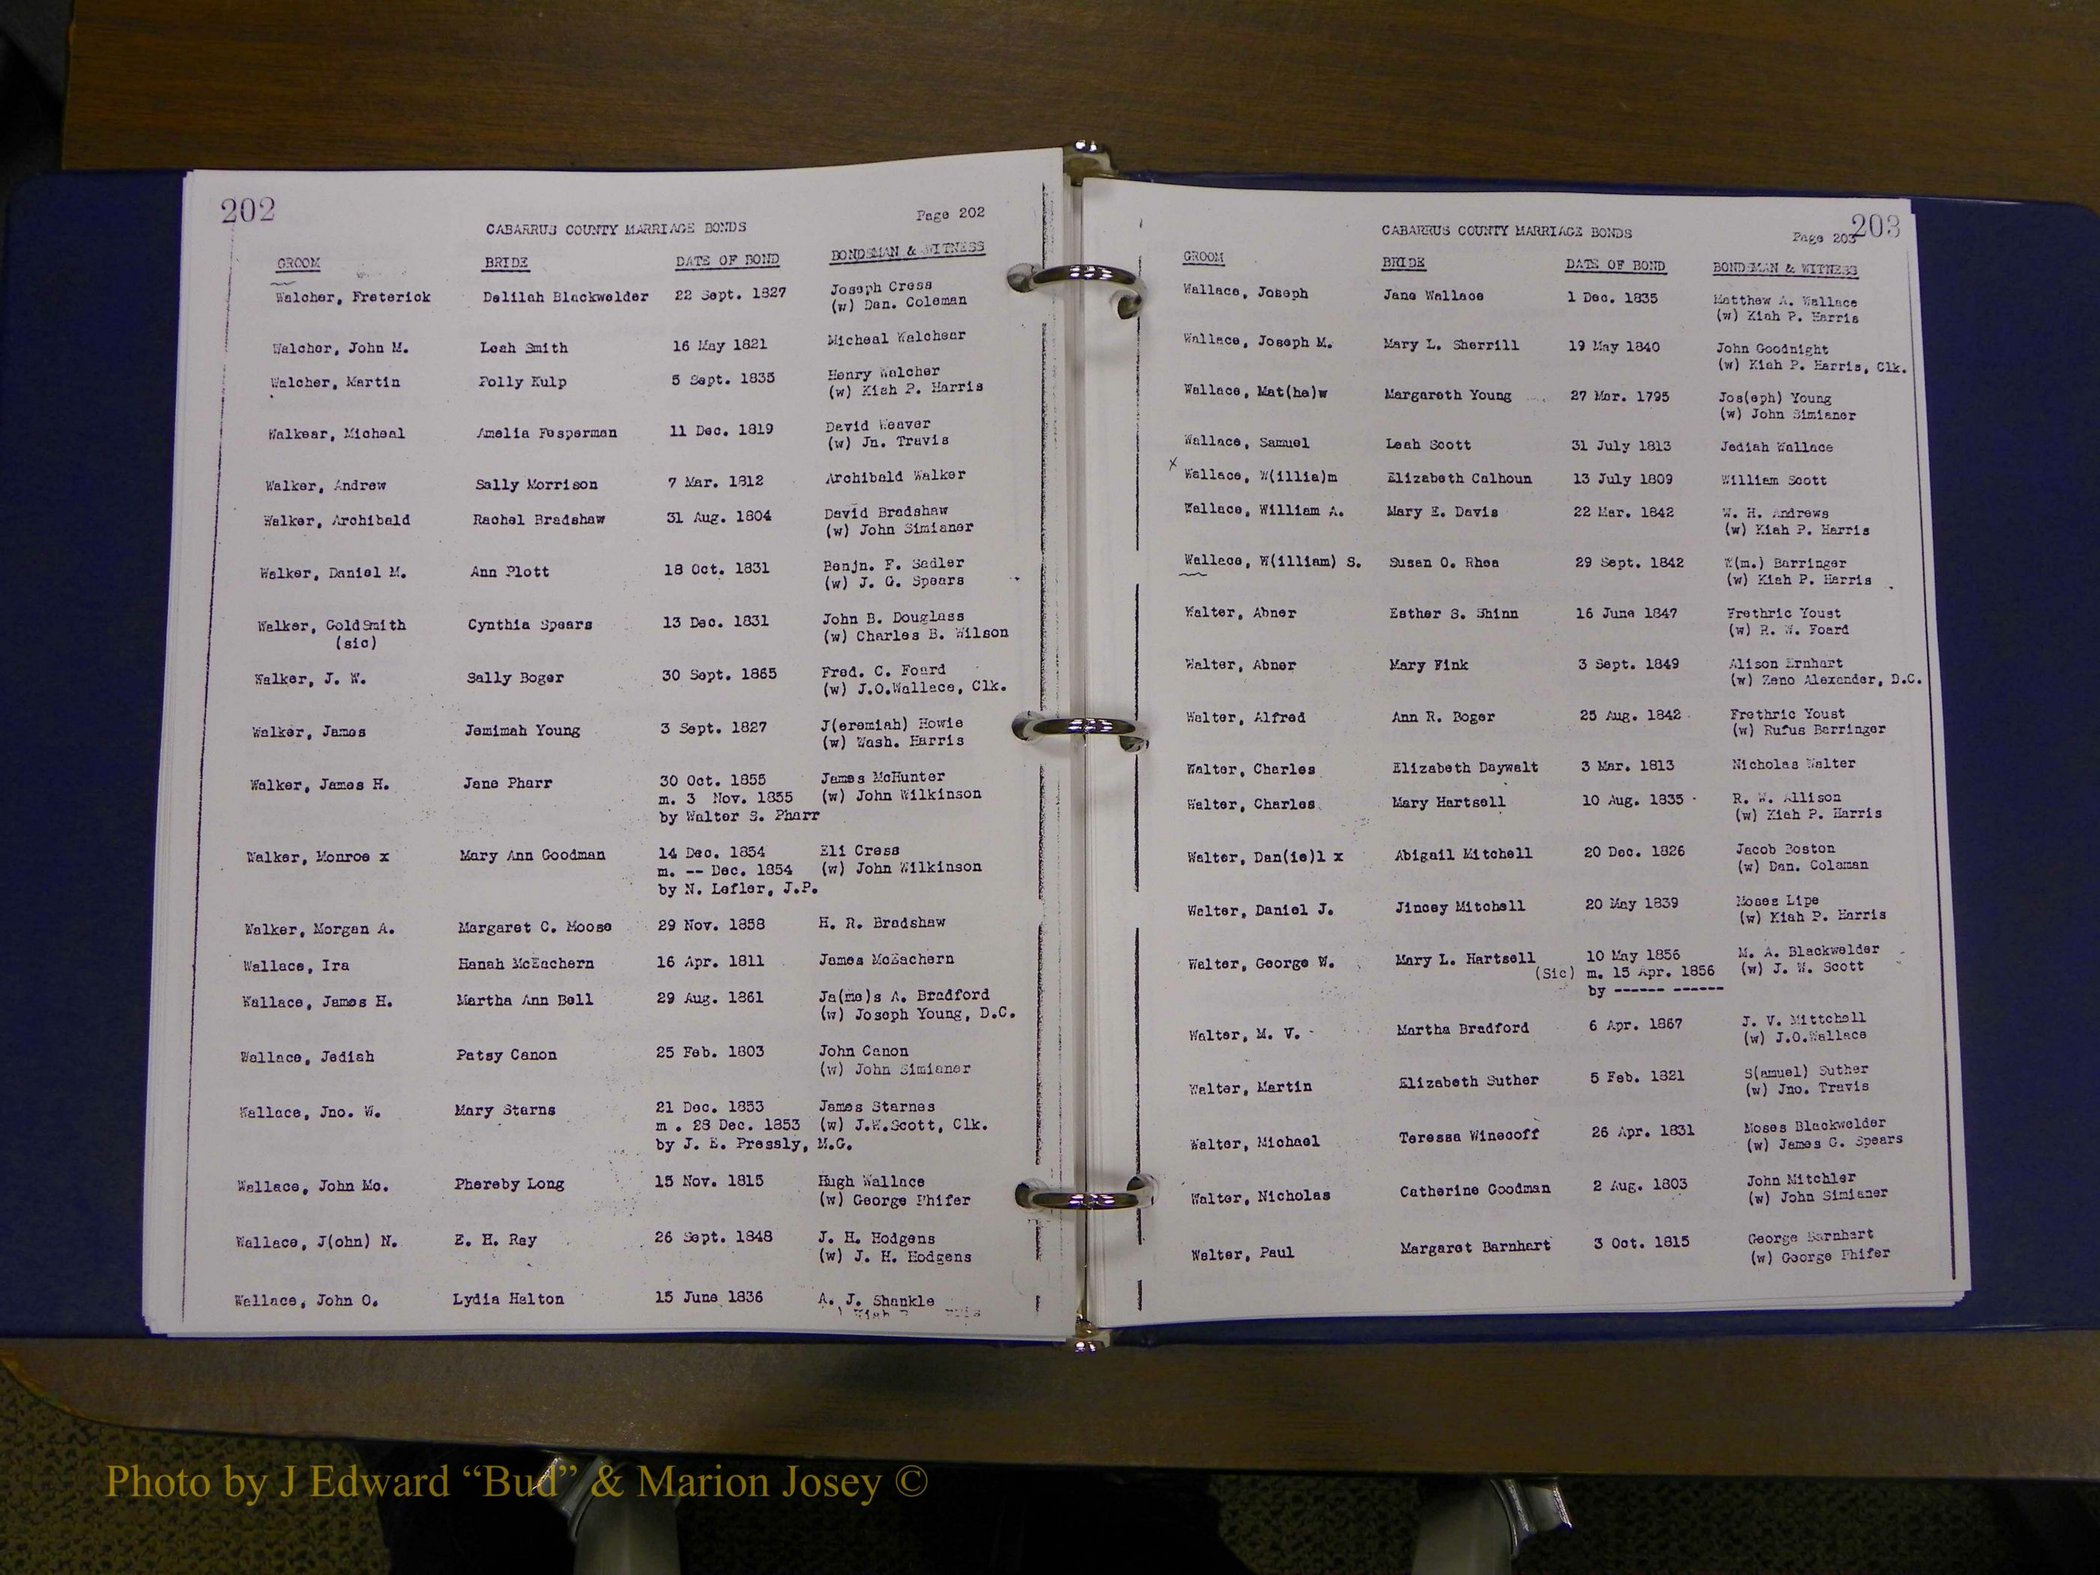 202
Page 202
CABARRUS COUNTY MARRIAGE BONDS
GROOM BRIDE DATE OF BOND BONDSMAN & WITNESS
Walcher, Freterick Delilah Blackwelder 22 Sept. 1827 Joseph Cress
(w) Dan. Coleman
Walcher, John M. Leah Smith 16 May 1821 Micheal Walchear
Walcher, Martin Polly Kulp 5 Sept. 1835 Henry Walcher
(w) Kiah P. Harris
Walkear, Micheal Amelia Fesperman 11 Dec. 1819 David Weaver
(w) Jn. Travis
Walker, Andrew Sally Morrison 7 Mar. 1812 Archibald Walker
Walker, Archibald Rachel Bradshaw 31 Aug. 1804 David Bradshaw
(w) John Simianer
Walker, Daniel M. Ann Plott 18 Oct. 1831 Benjn. F. Sadler
(w) J. G. Spears
Walker, GoldSmith Cynthia Spears 13 Dec. 1831 John B. Douglass
(sic) (w) Charles B. Wilson
Walker, J. W. Sally Boger 30 Sept. 1865 Fred. C. Foard
(w) J.O.Wallace, Clk.
Walker, James Jemimah Young 3 Sept. 1827 J(eremiah) Howie
(w) Wash. Harris
Walker, James H. Jane Pharr 30 Oct. 1855 James McHunter
m. 3 Nov. 1855 (w) John Wilkinson
by Walter S. Pharr
Walker, Monroe x Mary Ann Goodman 14 Dec. 1854 Eli Cress
m. -- Dec. 1854 (w) John Wilkinson
by N. Lefler, J.P.
Walker, Morgan A. Margaret C. Moose 29 Nov. 1858 H. R. Bradshaw
Wallace, Ira Hanah McEachern 16 Apr. 1811 James McEachern
Wallace, James H. Martha Ann Bell 29 Aug. 1861 Ja(me)s A. Bradford
(w) Joseph Young, D.C.
Wallace, Jediah Patsy Canon 25 Feb. 1803 John Canon
(w) John Simianer
Wallace, Jno. W. Mary Starns 21 Dec. 1853 James Starnes
m . 28 Dec. 1853 (w) J.W.Scott, Clk.
by J. E. Pressly, M.G.
Wallace, John Mc. Phereby Long 15 Nov. 1815 Hugh Wallace
(w) George Phifer
Wallace, J(ohn) N. E. H. Ray 26 Sept. 1848 J. H. Hodgens
(w) J. H. Hodgens
Wallace, John O. Lydia Halton 15 June 1836 A. J. Shankle
203
Page 203
CABARRUS COUNTY MARRIAGE BONDS
GROOM BRIDE DATE OF BOND BONDSMAN & WITNESS
Wallace, Joseph Jane Wallace 1 Dec. 1835 Matthew A. Wallace
(w) Kiah P. Harris
Wallace, Joseph M. Mary L. Sherrill 19 May 1840 John Goodnight
(w) Kiah P. Harris, Clk.
Wallace, Mat(he)w Margareth Young 27 Mar. 1795 Jos(eph) Young
(w) John Simianer
Wallace, Samuel Leah Scott 31 July 1813 Jediah Wallace
x Wallace, W(illia)m Elizabeth Calhoun 13 July 1809 William Scott
Wallace, William A. Mary E. Davis 22 Mar. 1842 W. H. Andrews
(w) Kiah P. Harris
Wallace, W(illiam) S. Susan O. Rhea 29 Sept. 1842 W(m.) Barringer
(w) Kiah P. Harris
Walter, Abner Esther S. Shinn 16 June 1847 Frethric Youst
(w) R. W. Foard
Walter, Abner Mary Fink 3 Sept. 1849 Alison Ernhart
(w) Zeno Alexander, D.C.
Walter, Alfred Ann R. Boger 25 Aug. 1842 Frethric Youst
(w) Rufus Barringer
Walter, Charles Elizabeth Daywalt 3 Mar. 1813 Nicholas Walter
Walter, Charles Mary Hartsell 10 Aug. 1835 R. W. Allison
(w) Kiah P. Harris
Walter, Dan(ie)l x Abigail Mitchell 20 Dec. 1826 Jacob Boston
(w) Dan. Coleman
Walter, Daniel J. Jincey Mitchell 20 May 1839 Moses Lipe
(w) Kiah P. Harris
Walter, George W. Mary L. Hartsell 10 May 1856 M. A. Blackwelder
(Sic) m. 15 Apr. 1856 (w) J. W. Scott
by ------ ------
Walter, M. V. Martha Bradford 6 Apr. 1867 J. V. Mittchell
(w) J.O.Wallace
Walter, Martin Elizabeth Suther 5 Feb. 1821 S(amuel) Suther
(w) Jno. Travis
Walter, Michael Teressa Winecoff 26 Apr. 1831 Moses Blackwelder
(w) James G. Spears
Walter, Nicholas Catherine Goodman 2 Aug. 1803 John Mitchler
(w) John Simianer
Walter, Paul Margaret Barnhart 3 Oct. 1815 George Barnhart
(w) George Phifer
Photo by J Edward “Bud” & Marion Josey ©